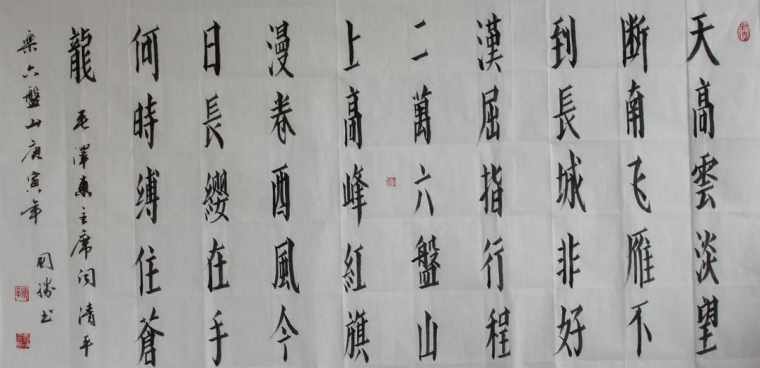 天高雲淡望
断南飞雁不
到長城非好
漢屈指行程
二萬六盤山
上高峰紅旗
漫卷西風今
日長纓在手
何時縛住蒼
龍 毛澤東主席词清平
樂六盤山庚寅年
国勝书